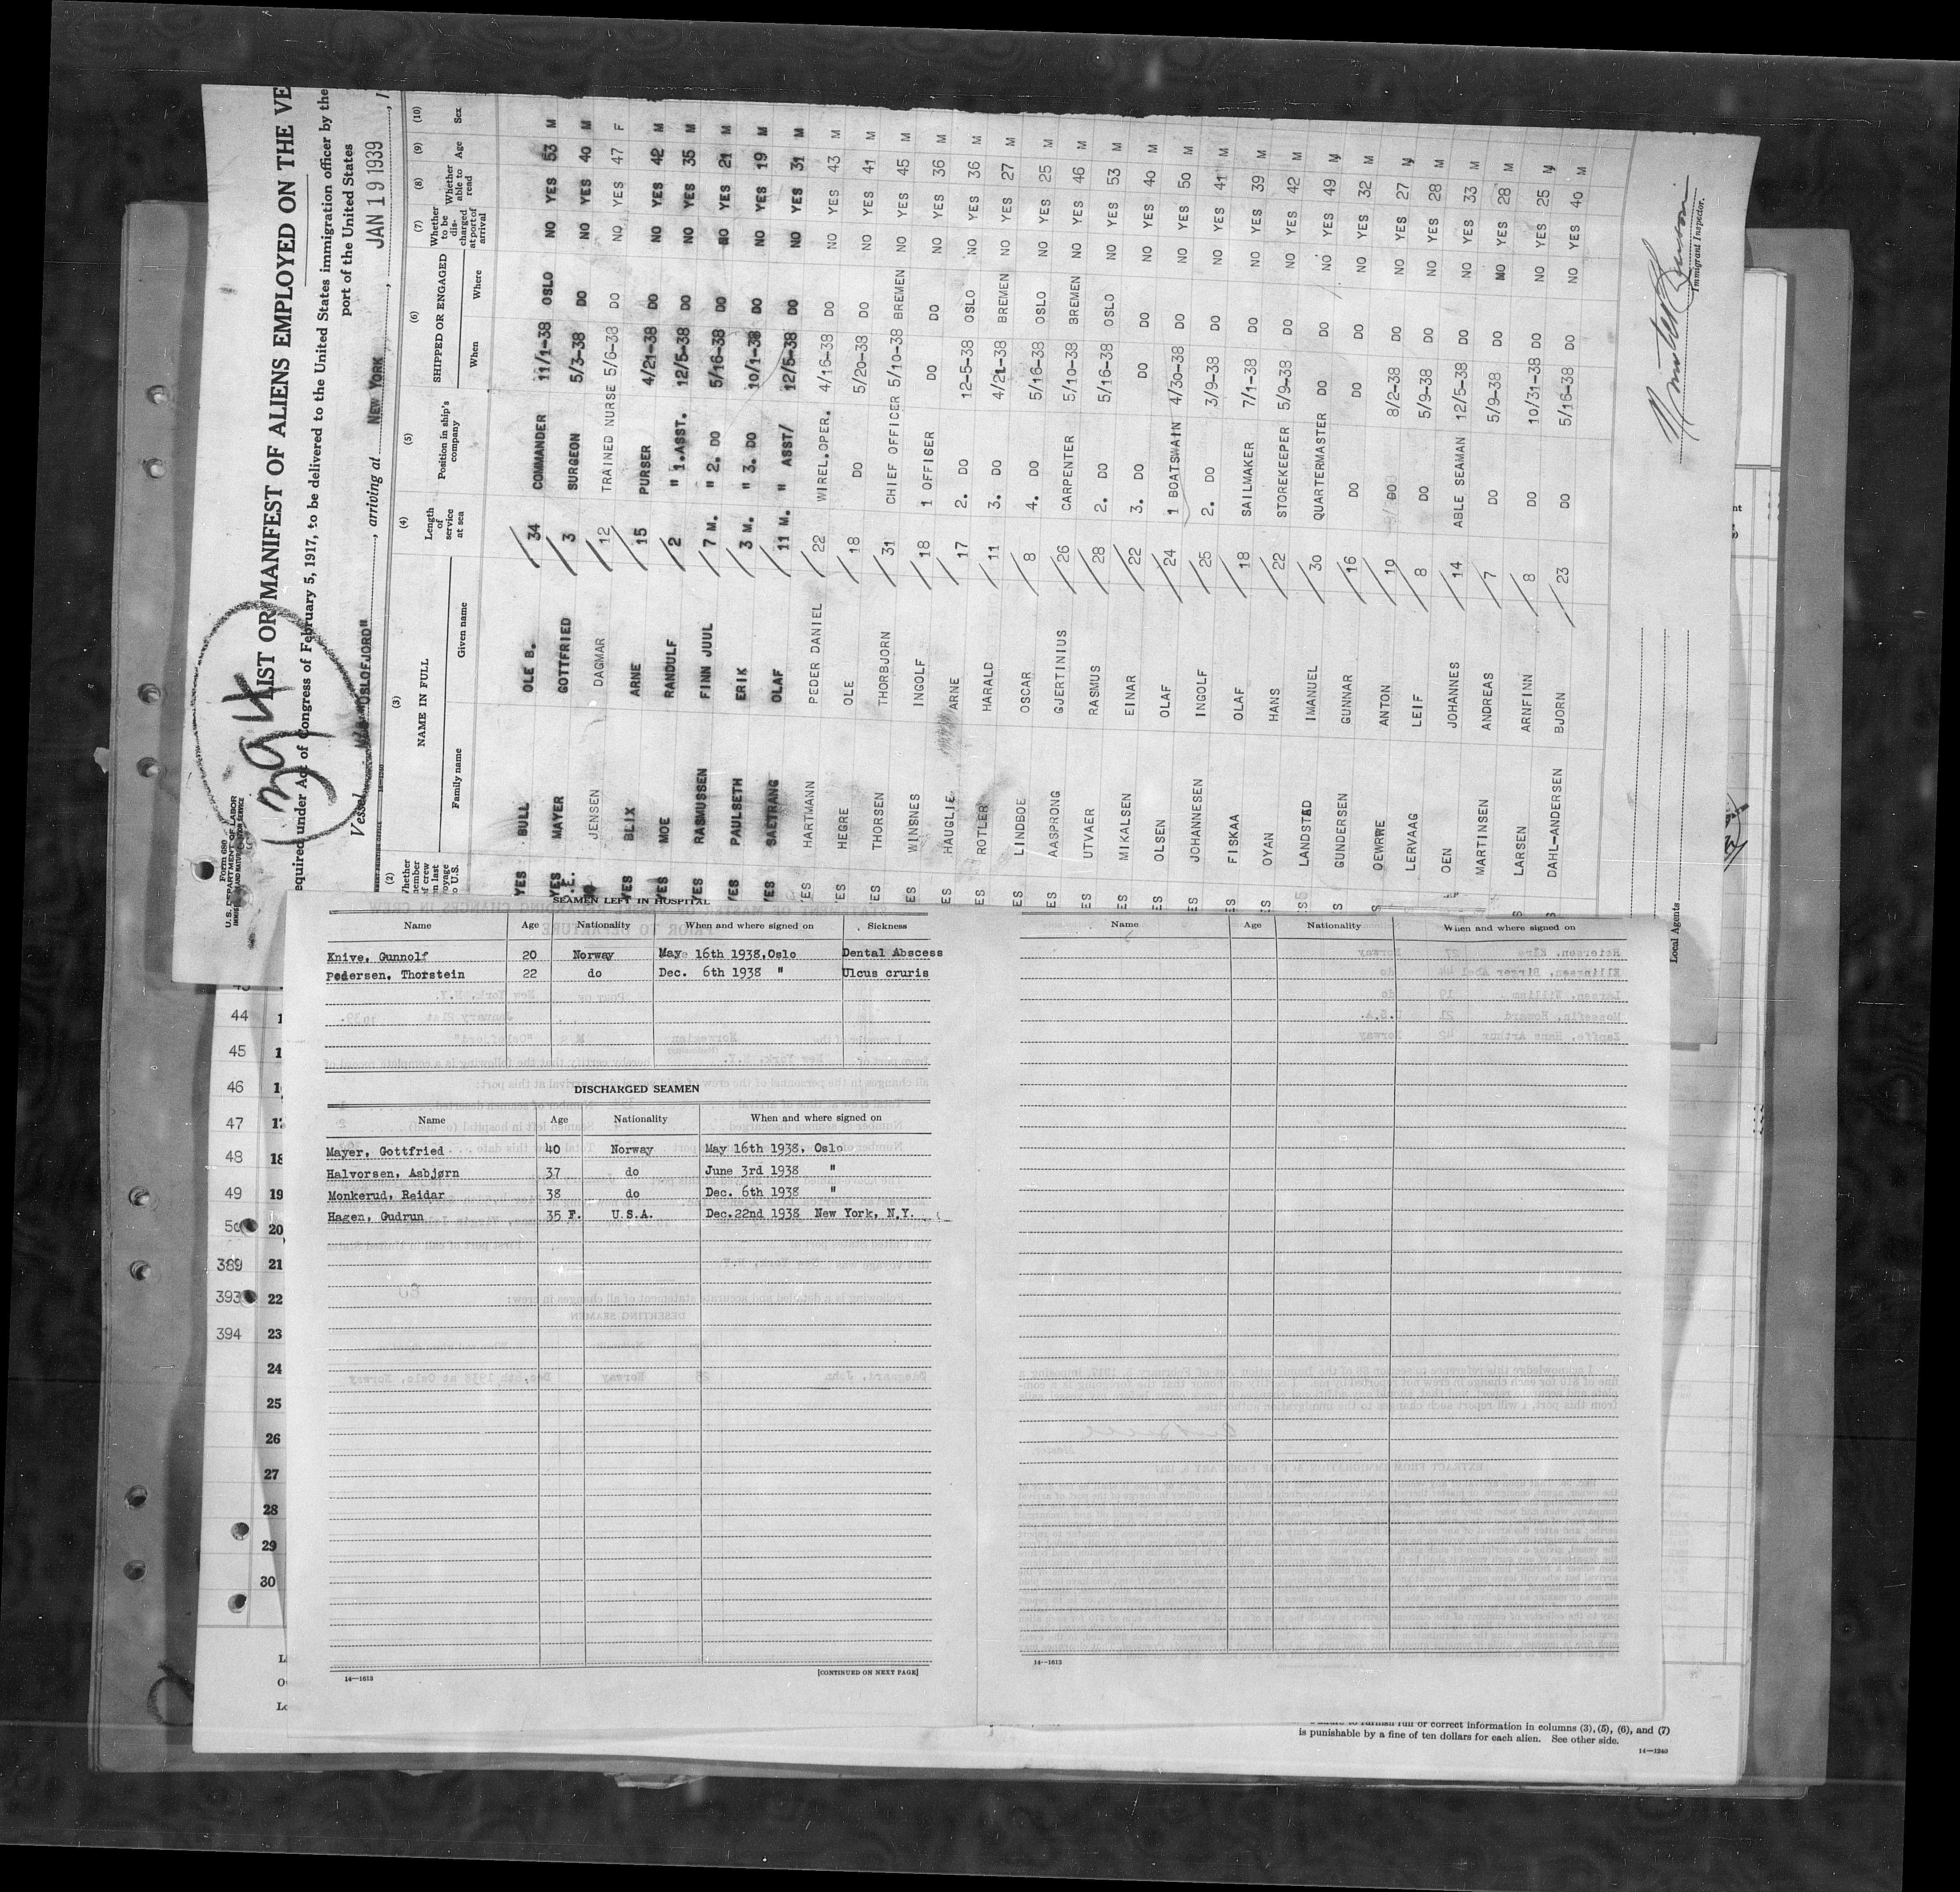 Form 680
U.S. DEPARTMENT OF LABOR
394
LIST OR MANIFEST OF ALIENS EMPLOYED ON THE VE
equired under Act of Congress of February 5, 1917, to be delivered to the United States immigration officer by the
port of the United States
Vessel M/S "OSLOFJORD", arriving at NEW YORK, JAN 19 1939, 1
(2) (3) (4) (5) (6) (7) (8) (9) (10)
Whether member of crew on last voyage to U.S. NAME IN FULL Family name Given name Length of service at sea Position in ship's company SHIPPED OR ENGAGED When Where Whether to be discharged at port of arrival Whether able to read Age Sex
YES BULL OLE B. 34 COMMANDER 11/1-38 OSLO NO YES 53 M
YES MAYER GOTTFRIED 3 SURGEON 5/3-38 DO NO YES 40 M
JENSEN DAGMAR 12 TRAINED NURSE 5/6-38 DO NO YES 47 F
YES BLIX ARNE 15 PURSER 4/21-38 DO NO YES 42 M
YES MOE RANDULF 2 " 1.ASST. 12/5-38 DO NO YES 35 M
YES RASMUSSEN FINN JUUL 7 M. " 2. DO 5/16-38 DO NO YES 21 M
YES PAULSETH ERIK 3 M. " 3. DO 10/1-38 DO NO YES 19 M
YES SAETRANG OLAF 11 M. " ASST/ 12/5-38 DO NO YES 31 M
YES HARTMANN PEDER DANIEL 22 WIREL.OPER. 4/16-38 DO NO YES 43 M
ES HEGRE OLE 18 DO 5/20-38 DO NO YES 41 M
ES THORSEN THORBJORN 31 CHIEF OFFICER 5/10-38 BREMEN NO YES 45 M
ES WINSNES INGOLF 18 1 OFFISER DO DO NO YES 36 M
ES HAUGLIE ARNE 17 2. DO 12-5-38 OSLO NO YES 36 M
ES ROTLER HARALD 11 3. DO 4/21-38 BREMEN NO YES 27 M
ES LINDBOE OSCAR 8 4. DO 5/16-38 OSLO NO YES 25 M
ES AASPRONG GJERTINIUS 26 CARPENTER 5/10-38 BREMEN NO YES 46 M
ES UTVAER RASMUS 28 2. DO 5/16-38 OSLO NO YES 53 M
ES MIKALSEN EINAR 22 3. DO DO DO NO YES 40 M
ES OLSEN OLAF 24 1 BOATSWAIN 4/30-38 DO NO YES 50 M
ES JOHANNESEN INGOLF 25 2. DO 3/9-38 DO NO YES 41 M
ES FISKAA OLAF 18 SAILMAKER 7/1-38 DO NO YES 39 M
ES OYAN HANS 22 STOREKEEPER 5/9-38 DO NO YES 42 M
ES LANDSTED IMANUEL 30 QUARTERMASTER DO DO NO YES 49 M
ES GUNDERSEN GUNNAR 16 DO DO DO NO YES 32 M
S OEWRWE ANTON 10 DO 8/2-38 DO NO YES 27 M
LERVAAG LEIF 8 DO 5/9-38 DO NO YES 28 M
OEN JOHANNES 14 ABLE SEAMAN 12/5-38 DO NO YES 33 M
MARTINSEN ANDREAS 7 DO 5/9-38 DO NO YES 28 M
S LARSEN ARNFINN 8 DO 10/31-38 DO NO YES 25 M
S DAHL-ANDERSEN BJORN 23 DO 5/16-38 DO NO YES 40 M
Immigrant Inspector.
Local Agents
SEAMEN LEFT IN HOSPITAL
Name Age Nationality When and where signed on Sickness
Knive, Gunnolf 20 Norway May 16th 1938, Oslo Dental Abscess
Pedersen, Thorstein 22 do Dec. 6th 1938 " Ulcus cruris
DISCHARGED SEAMEN
Name Age Nationality When and where signed on
Mayer, Gottfried 40 Norway May 16th 1938, Oslo
Halvorsen, Asbjørn 37 do June 3rd 1938 "
Monkerud, Reidar 38 do Dec. 6th 1938 "
Hagen, Gudrun 35 F. U.S.A. Dec.22nd 1938 New York, N.Y.
14—1613
[CONTINUED ON NEXT PAGE]
Name Age Nationality When and where signed on
14—1613
44
45
46
47
48 18
49 19
50 20
389 21
393 22
394 23
24
25
26
27
28
29
30
full or correct information in columns (3), (5), (6), and (7)
is punishable by a fine of ten dollars for each alien. See other side.
14—1240